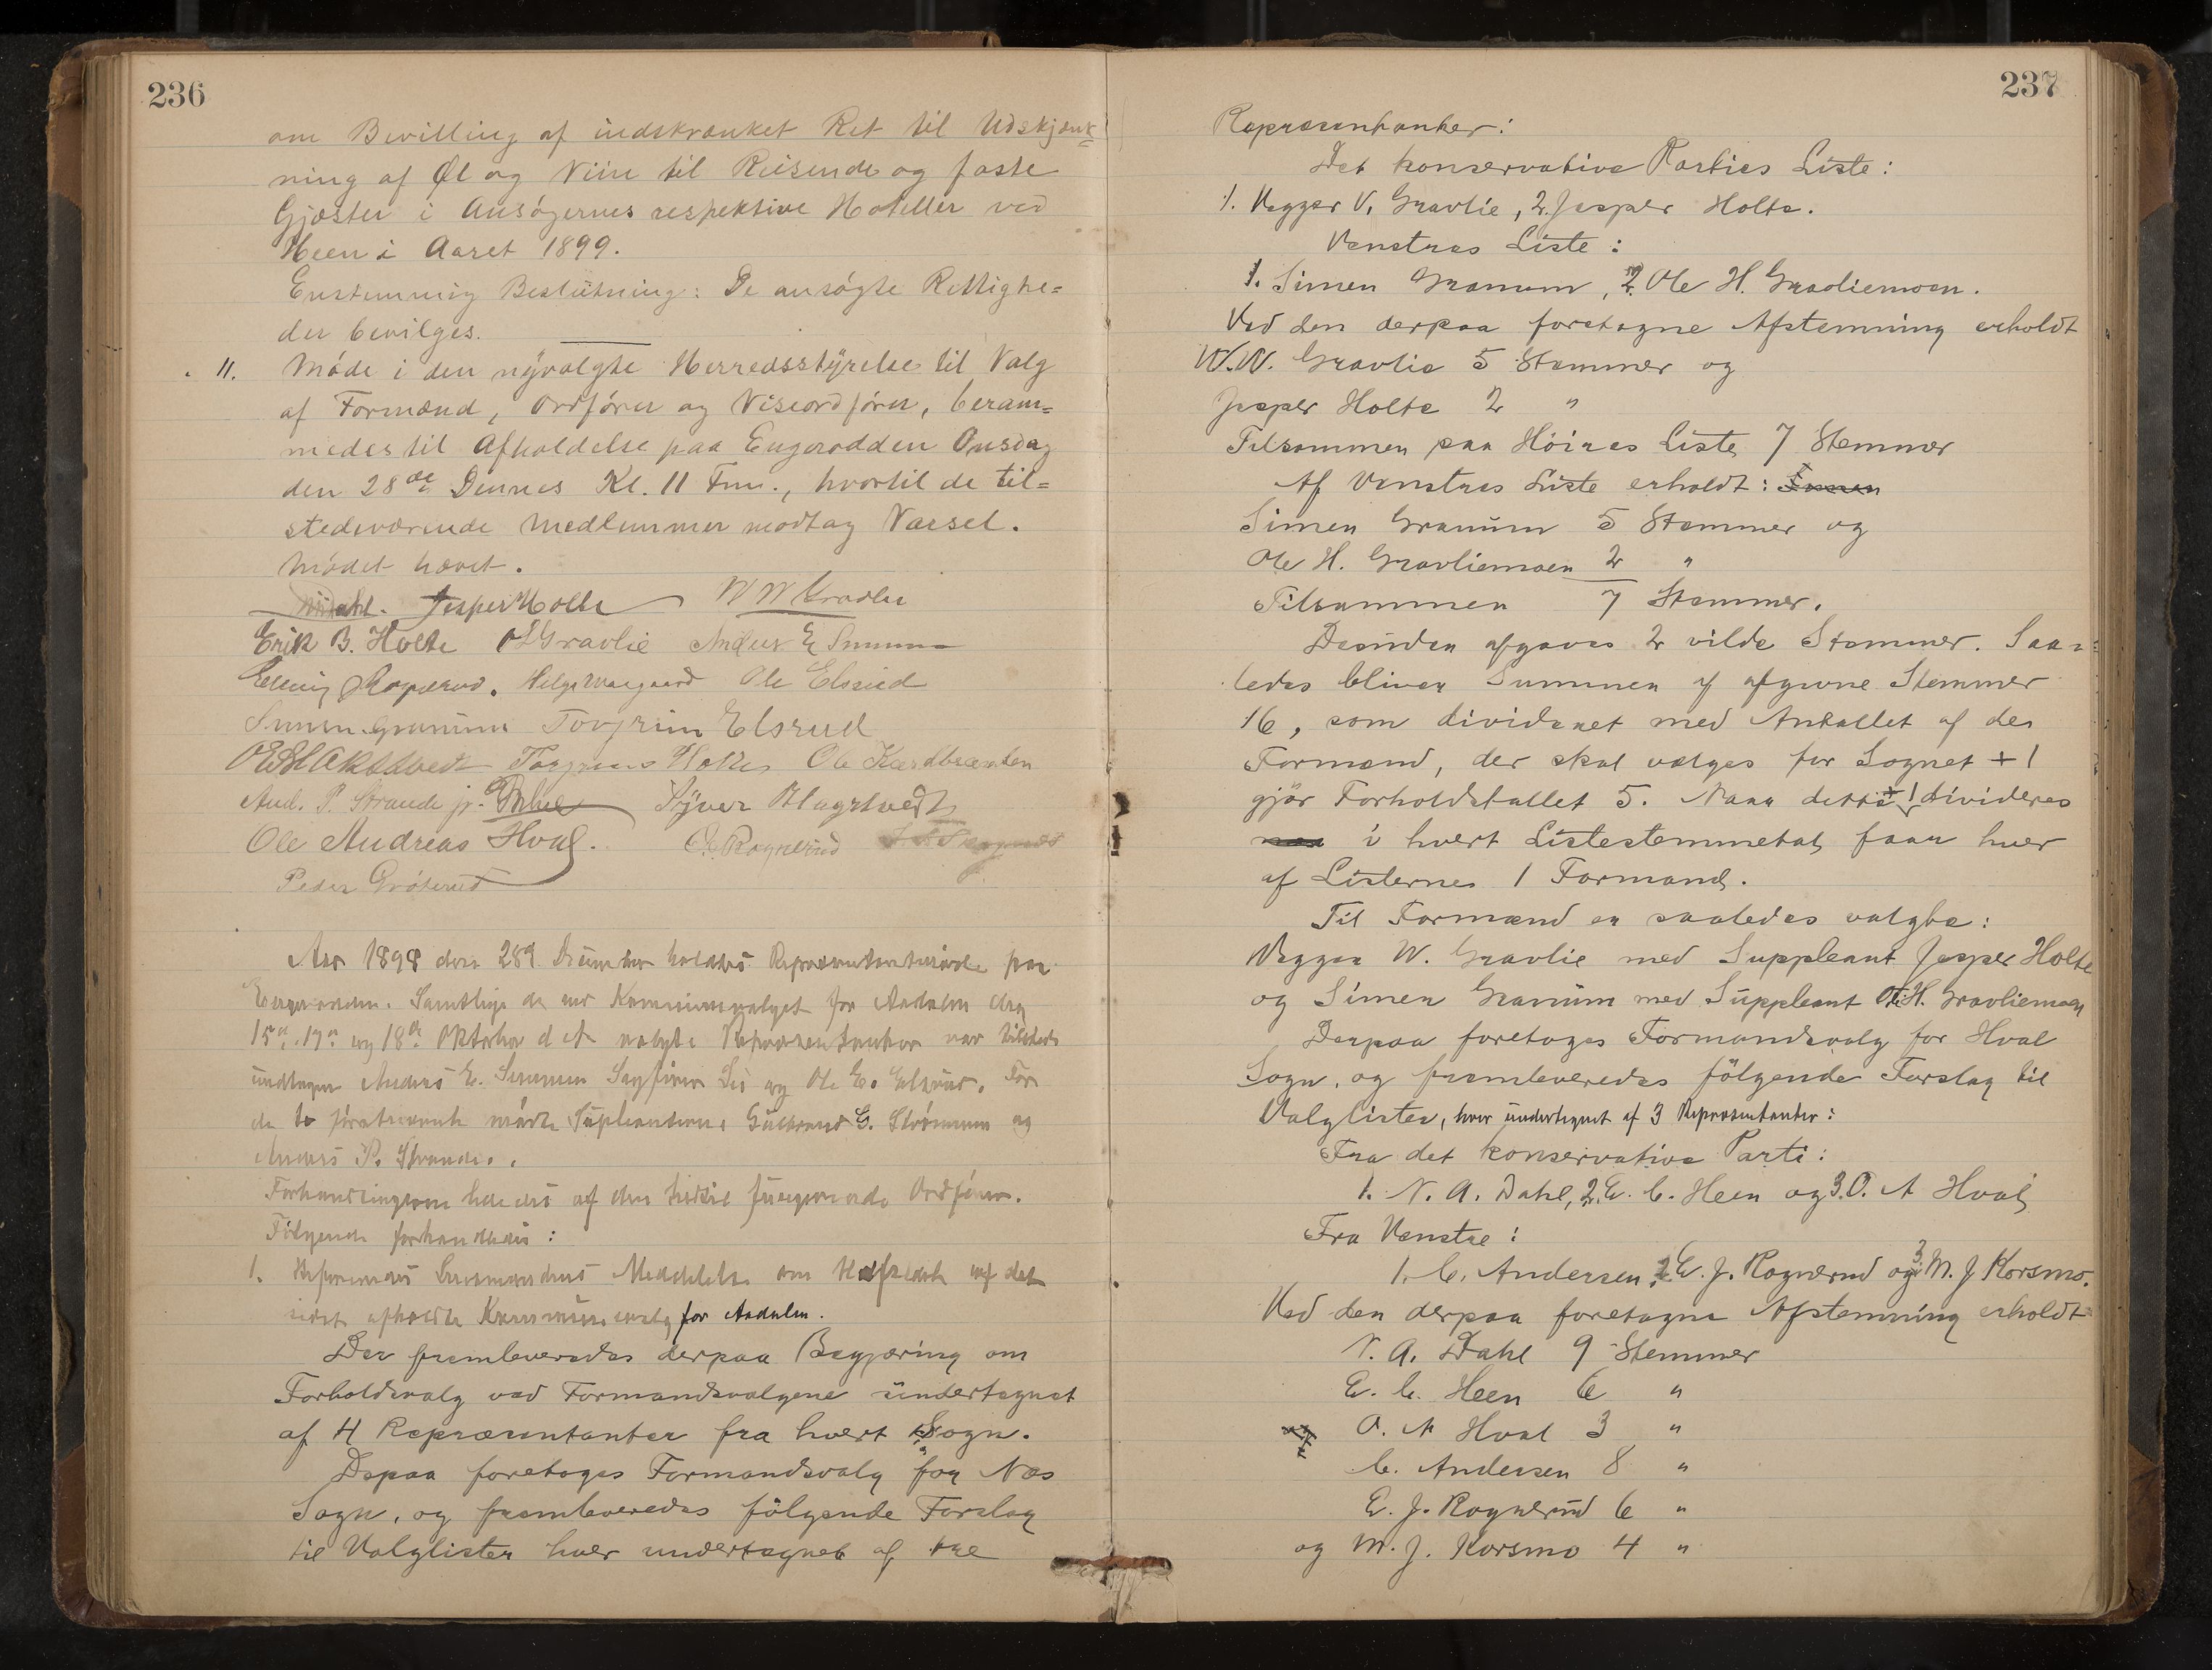 236
om Bevilling af indskrænket Ret til Udskjænk=
ning af Øl og Viin til Reisende og faste
Gjæster i Ansøgernes respektive Hoteller ved
Heen i Aaret 1899.
Enstemmig Beslutning: De ansøgte Rettighe=
der bevilges.
11. Møde i den nyvalgte Herredsstyrelse til Valg
af Formænd, Ordfører og Viseordfører, beram=
medes til Afholdelse paa Engerodden Onsdag
den 28de Dennes Kl. 11 Fm., hvortil de til=
stedeværende Medlemmer modtog Varsel.
Mødet hævet.
Jesper Holte W W Gravlie
Erik B. Holte O Gravlie Anders E Semmen
Helge Ole Elsrud
Simen Granum Torgrim Elsrud
Torgrim Holte Ole
And. P. Strande jr. Syver Hagelvedt
Ole Andreas Hval. E. Rognerud
Peder Grøterud
Aar 1898 den 28de December holdtes Repræsentantmøde paa
Engerodden. Samtlige de ved Kommunevalget for Aadalen den
15de, 17de og 18de Oktober d. A. valgte Repræsentanter var tilstede
undtagen Anders E. Semmen og Ole E. Elsrud. For
de to førstnævnte mødte Supleanterne Gulbrand G. Strømmen og
Anders P. Strande.
Forhandlingerne lededes af den hidtil fungerende Ordfører.
Følgende forhandledes:
1. Refereredes Lensmandens Meddelelse om Udfaldet af det
sidst afholdte Kommunevalg for Aadalen.
Der fremleveredes derpaa Begjæring om
Forholdsvalg ved Formandsvalgene undertegnet
af 4 Repræsentanter fra hvert Sogn.
Depaa foretoges Formandsvalg for Næs
Sogn, og fremleveredes følgende Forslag
til Valglister hver undertegnet af tre
237
Repræsentanter:
Det konservative Parties Liste:
1. Vegger V. Gravlie, 2. Jesper Holte.
Venstres Liste:
1. Simen Granum, 2. Ole H. Gravliemoen.
Ved den derpaa foretagne Afstemning erholdt
W.W. Gravlie 5 Stemmer og
Jesper Holte 2 "
Tilsammen paa Høires Liste 7 Stemmer
Af Venstres Liste erholdt: Simen
Simen Granum 5 Stemmer og
Ole H. Gravliemoen 2 "
Tilsammen 7 Stemmer.
Desuden afgaves 2 vilde Stemmer. Saa=
ledes bliver Summen af afgivne Stemmer
16, som divideret med Antallet af de
Formænd, der skal vælges for Sognet + 1
gjør Forholdstallet 5. Naar dette + 1 divideres
i hvert Listestemmetal, faar hver
af Listerne 1 Formand.
Til Formænd er saaledes valgte:
Vegger W. Gravlie med Suppleant Jesper Holte
og Simen Granum med Suppleant O. H. Gravliemoen
Derpaa foretoges Formandsvalg for Hval
Sogn, og fremleveredes følgende Forslag til
Valglister, hver undertegnet af 3 Repræsentanter:
Fra det konservative Parti:
1. N. A. Dahl, 2. E. C. Heen og 3. O. A Hval
Fra Venstre:
1. C. Andersen, 2. E. J. Rognerud og 3. M. J Korsmo.
Ved den derpaa foretagne Afstemning erholdt
N. A. Dahl 9 Stemmer
E. C. Heen 6 "
O. A Hval 3 "
C. Andersen 8 "
E. J. Rognerud 6 "
og M. J. Korsmo 4 "